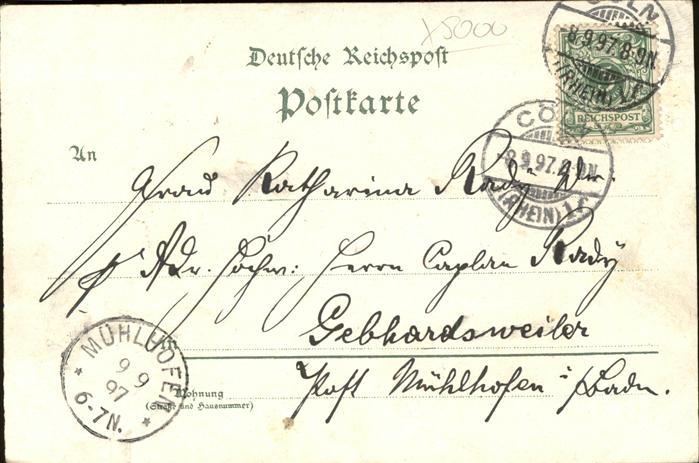 x5000
CÖLN
8.9.97.8-9N.
(RHEIN) 1
REICHSPOST
Deutsche Reichspost
Postkarte
CÖLN
8.9.97. 8-9N.
(RHEIN) 1
An
Frau Katharina Rady Wwe.
p. Adr. Hochw: Herrn Caplan Rady
Gebhardsweiler
Post Mühlhofen i/Baden.
MÜHLHOFEN
9 9
97
6-7N.
Wohnung
(Straße und Hausnummer)